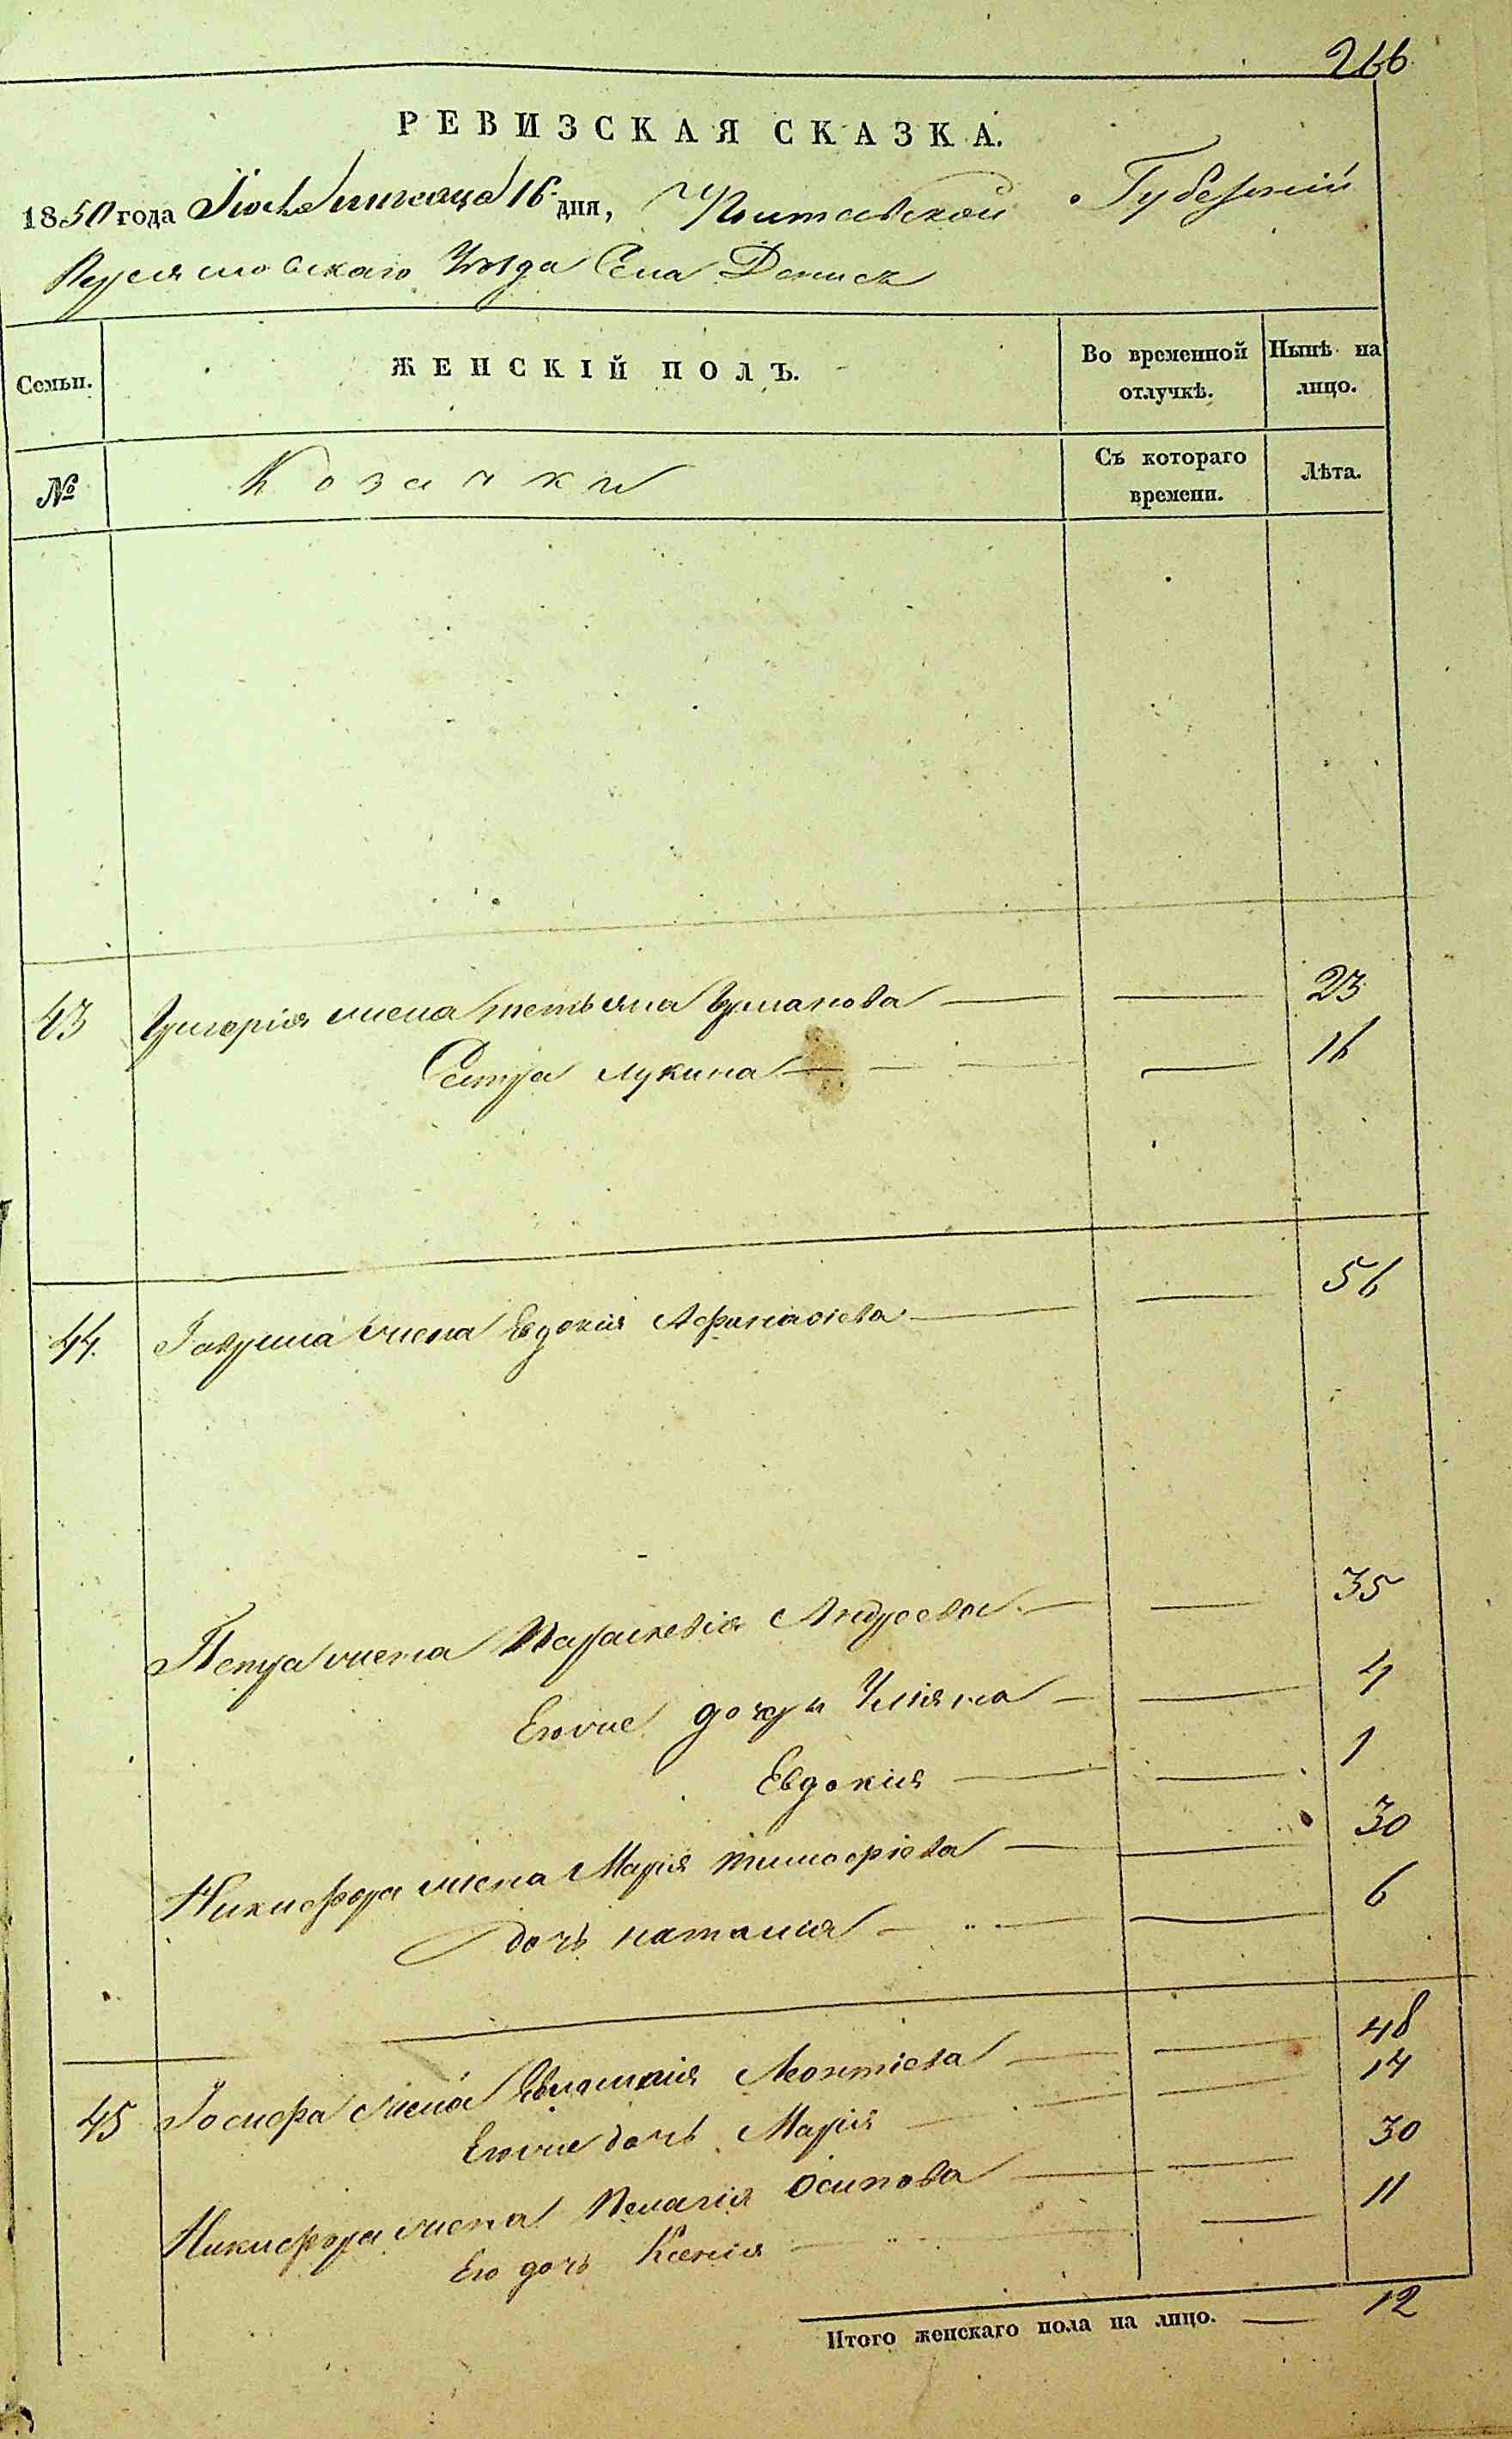 266
РЕВИЗСКАЯ СКАЗКА.
1850 года Июля месяца 16 дня, Полтавской Губерніи
Переяславскаго Уѣзда Села Денисъ
Семьи. ЖЕНСКІЙ ПОЛЪ. Во временной отлучкѣ. Нынѣ на лицо.
№ Козачки Съ котораго времени. Лѣта.
43 Григорія жена Тетьяна Романова — — 23
Сестра Лукина — — 16
44. Гаврила жена Евдокія Афанасіева — — 56
Петра жена Параскевія Андреева — — 35
Егоже дочери Уліяна — — 4
Евдокія — — 1
Никифора жена Марія Тимофіева — — 30
дочь Наталия — — 6
45 Іосифа жена Леонтіева — — 48
Егоже дочь Марія — — 14
Никифора жена Пелагія Осипова — — 30
Его дочь Ксенія — — 11
Итого женскаго пола на лицо. — 12